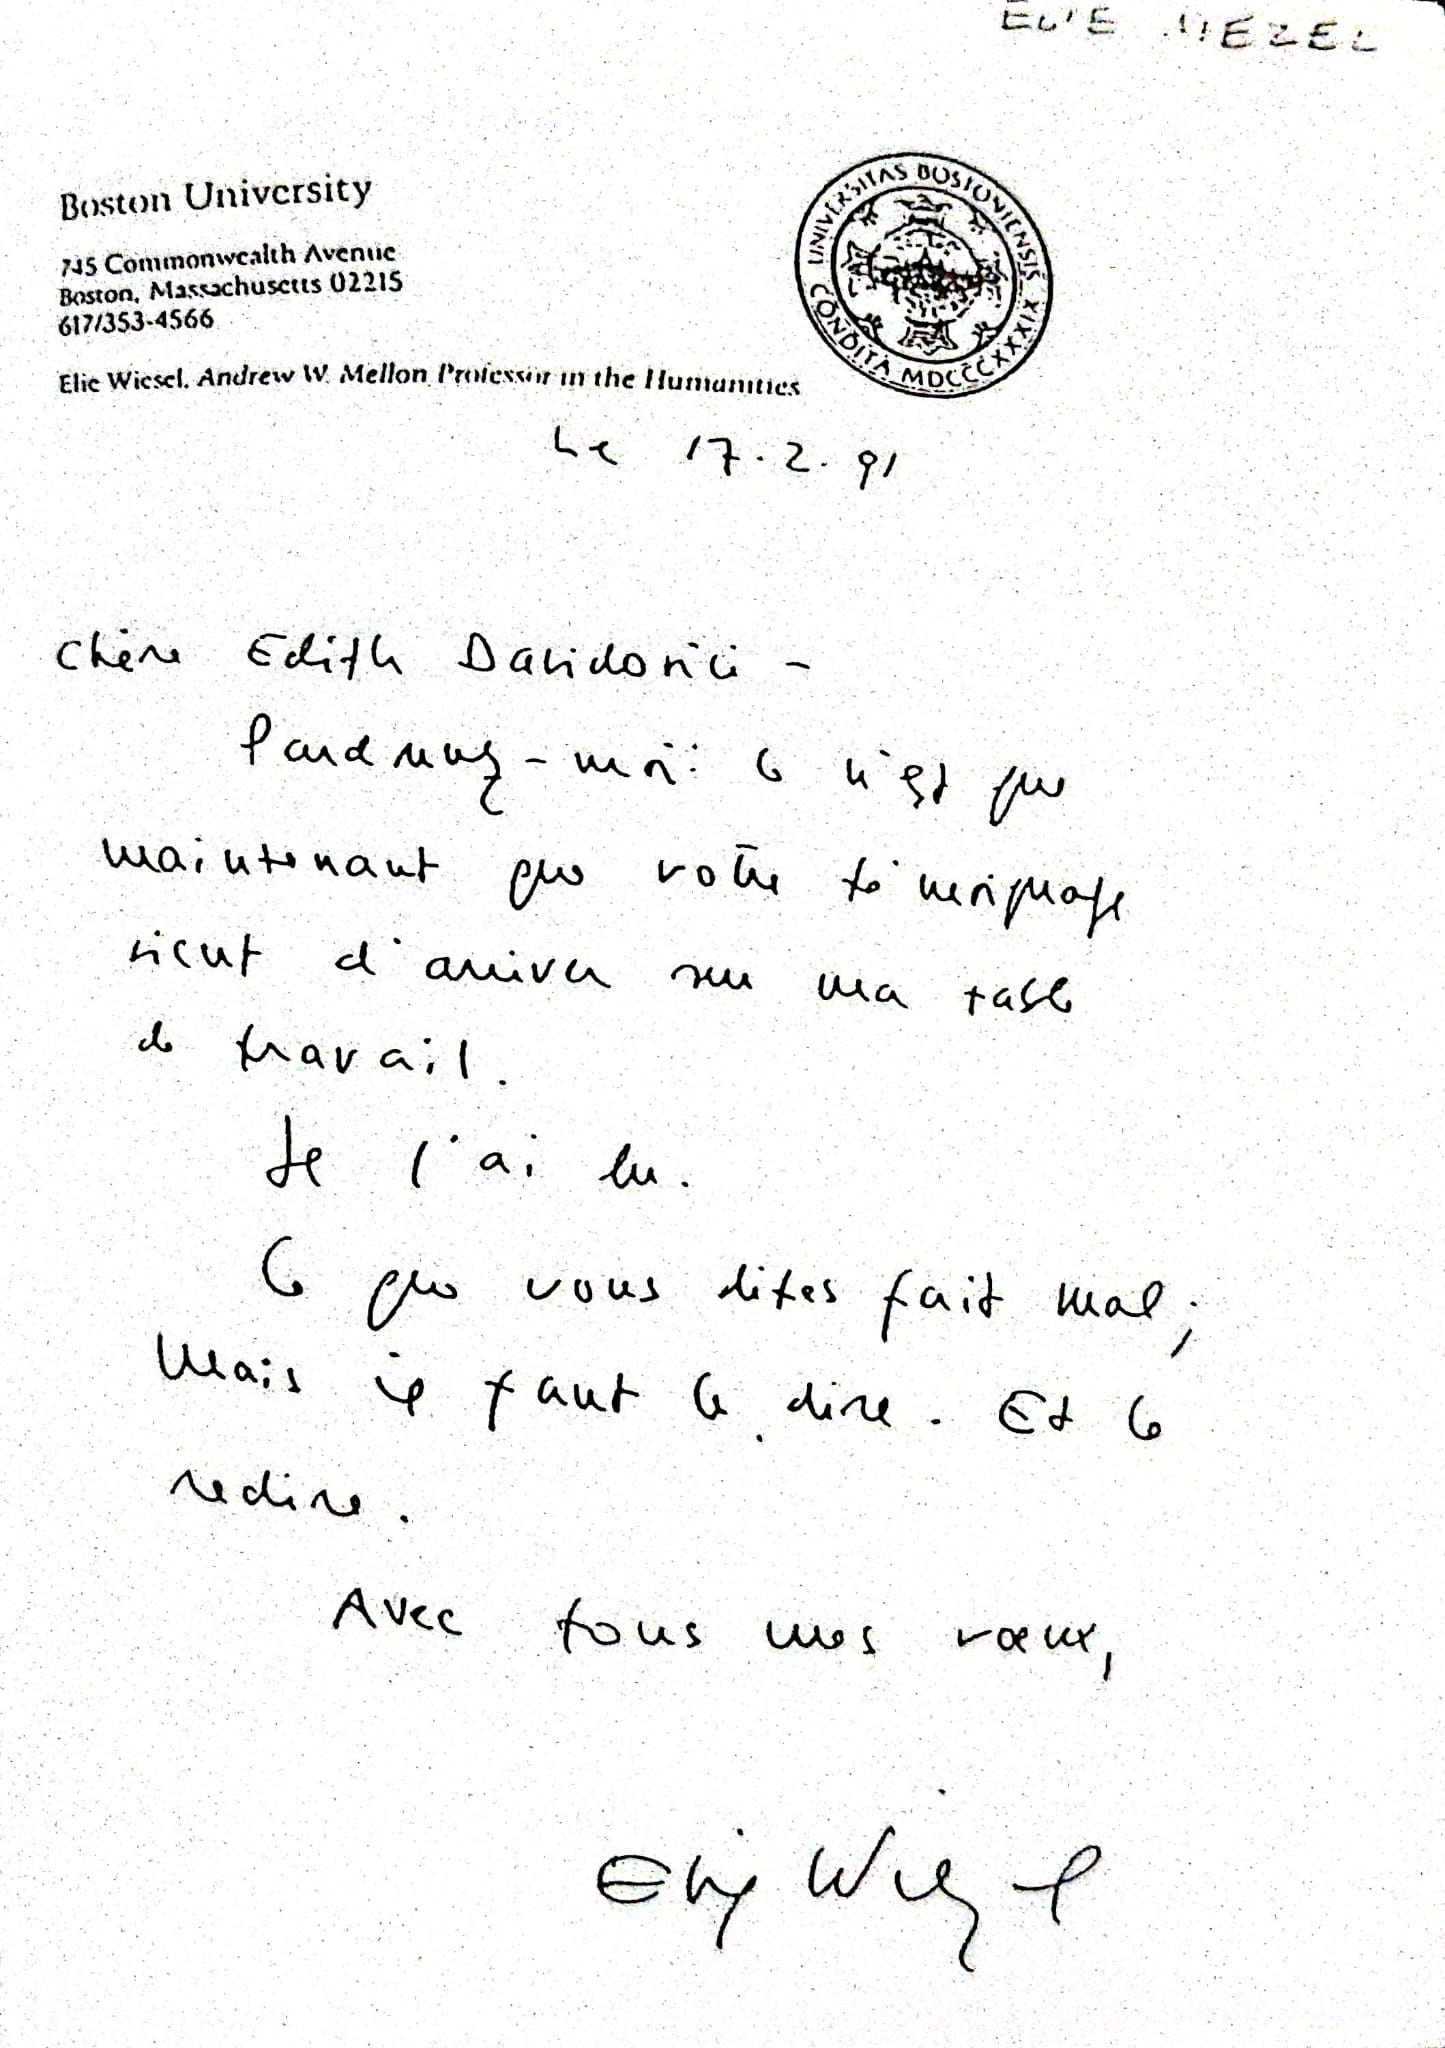 ELIE WIEZEL
Boston University
745 Commonwealth Avenue
Boston, Massachusetts 02215
617/353-4566
Elie Wiesel, Andrew W. Mellon Professor in the Humanities
UNIVERSITAS BOSTONIENSIS
CONDITA MDCCCXXXIX
Le 17.2.91
Chère Edith Davidovici -
Pardonnez-moi: ce n'est que
maintenant que votre témoignage
vient d'arriver sur ma table
de travail.
Je l'ai lu.
Ce que vous dites fait mal;
Mais il faut le dire. Et le
redire.
Avec tous mes vœux,
Elie Wiesel